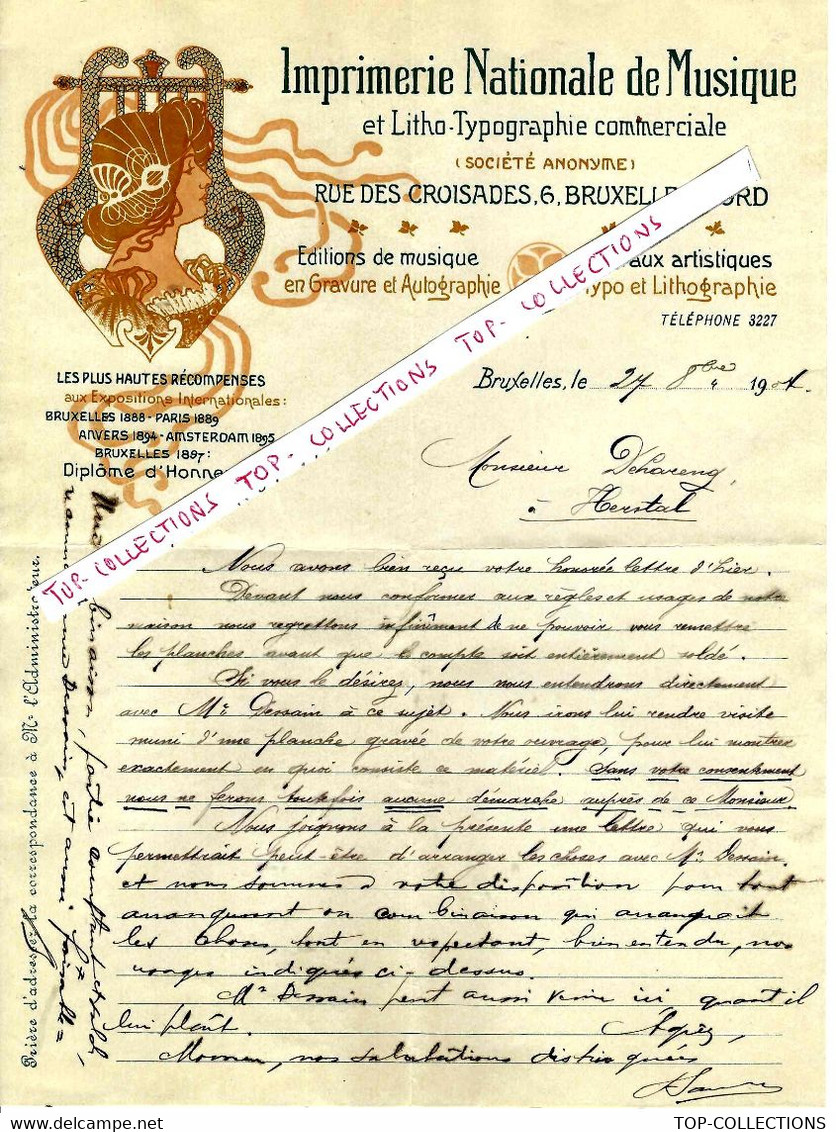 Imprimerie Nationale de Musique
et Litho-Typographie commerciale
(SOCIÉTÉ ANONYME)
RUE DES CROISADES, 6, BRUXELLE ORD
Editions de musique
aux artistiques
en Gravure et Autographie
ypo et Lithographie
TÉLÉPHONE 3227
TOP- COLLECTIONS TOP- COLLECTIONS TOP- COLLECTIONS TOP- COLLECTIONS
LES PLUS HAUTES RÉCOMPENSES
aux Expositions Internationales:
BRUXELLES 1888 - PARIS 1889
ANVERS 1894 - AMSTERDAM 1895
BRUXELLES 1897:
Diplôme d'Honne
Bruxelles, le 27 8bre 1904
Monsieur Dehareng,
à Herstal
Nous avons bien reçu votre honorée lettre d'hier.
Devant nous conformer aux règles et usages de notre
maison nous regrettons infiniment de ne pouvoir vous remettre
les planches avant que le compte soit entièrement soldé.
Si vous le désirez, nous nous entendrons directement
avec Mr Dessain à ce sujet. Nous irons lui rendre visite
muni d'une planche gravée de votre ouvrage, pour lui montrer
exactement en quoi consiste ce matériel. Sans votre consentement
nous ne ferons toutefois aucune démarche auprès de ce Monsieur.
Nous joignons à la présente une lettre qui vous
permettrait peut-être d'arranger les choses avec Mr Dessain.
et nous sommes à votre disposition pour tout
arrangement ou combinaison qui arrangerait
les choses, tout en respectant, bien entendu, nos
usages indiqués ci-dessus.
Mr Dessain peut aussi venir ici quand il
lui plaît. Agréez
Monsieur, nos salutations distinguées
Prière d'adresser la correspondance à Mr l'Administrateur.
binaison, partie comptant et solde
Dessain, est aussi faisable =
TOP-COLLECTIONS